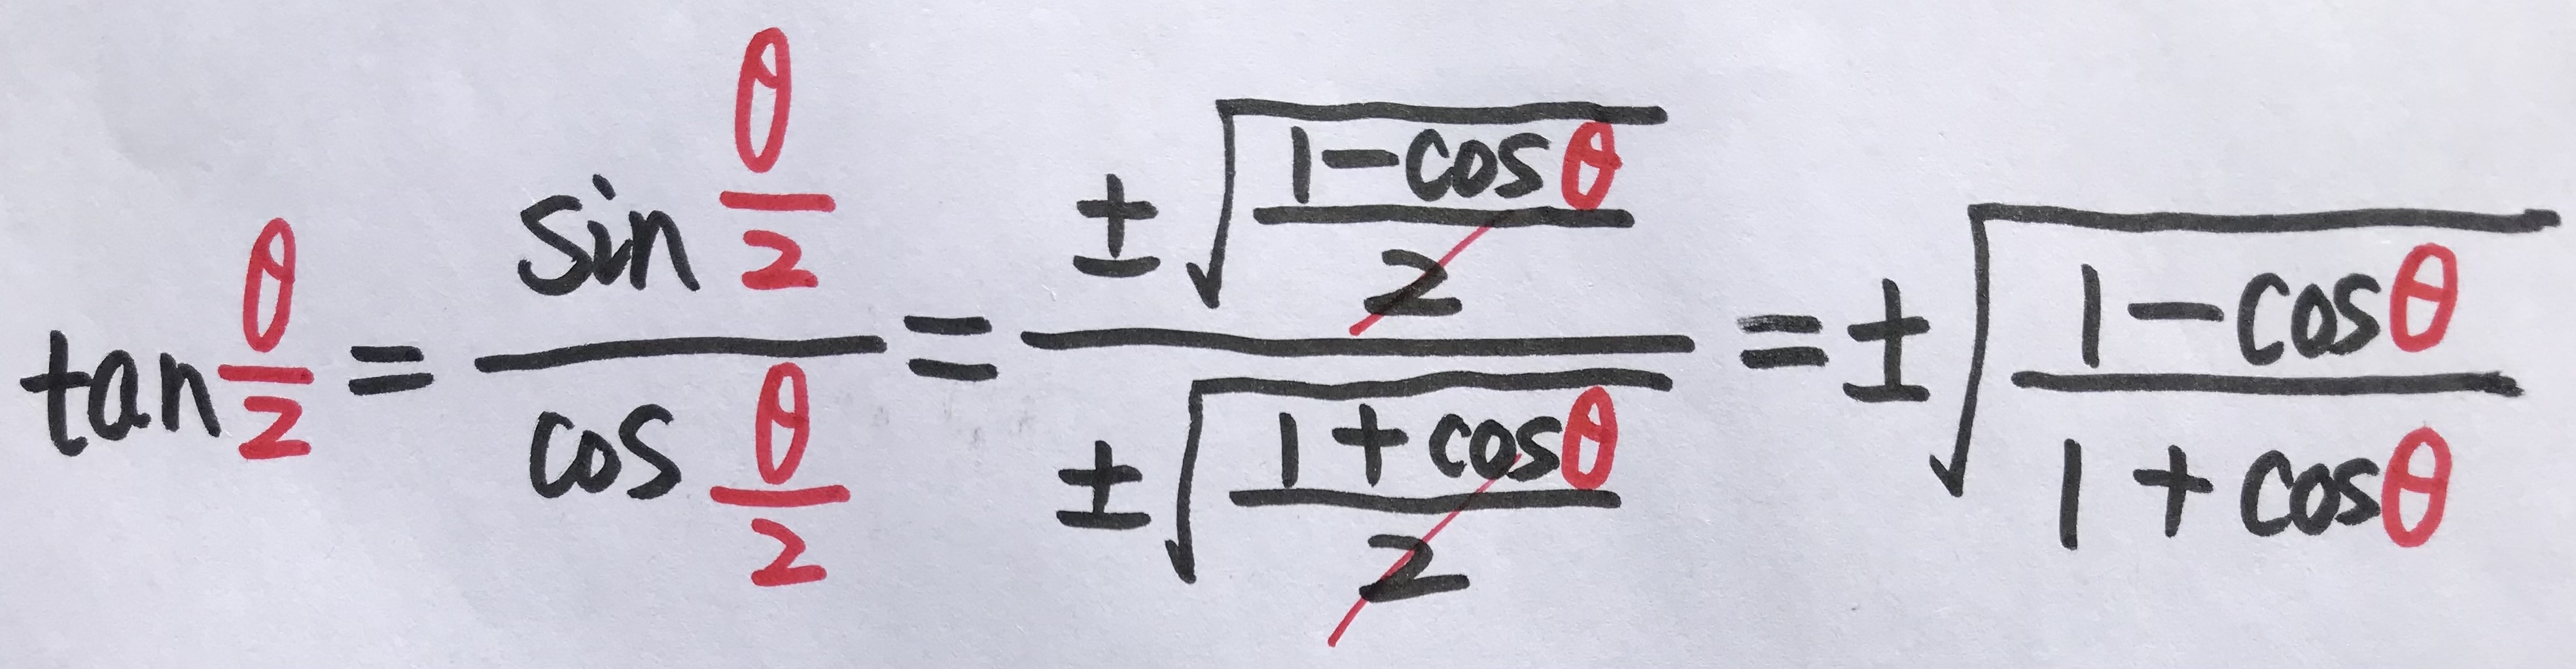 tan θ/2 = sin θ/2 / cos θ/2 = ±√((1-cosθ)/2) / ±√((1+cosθ)/2) = ±√((1-cosθ)/(1+cosθ))